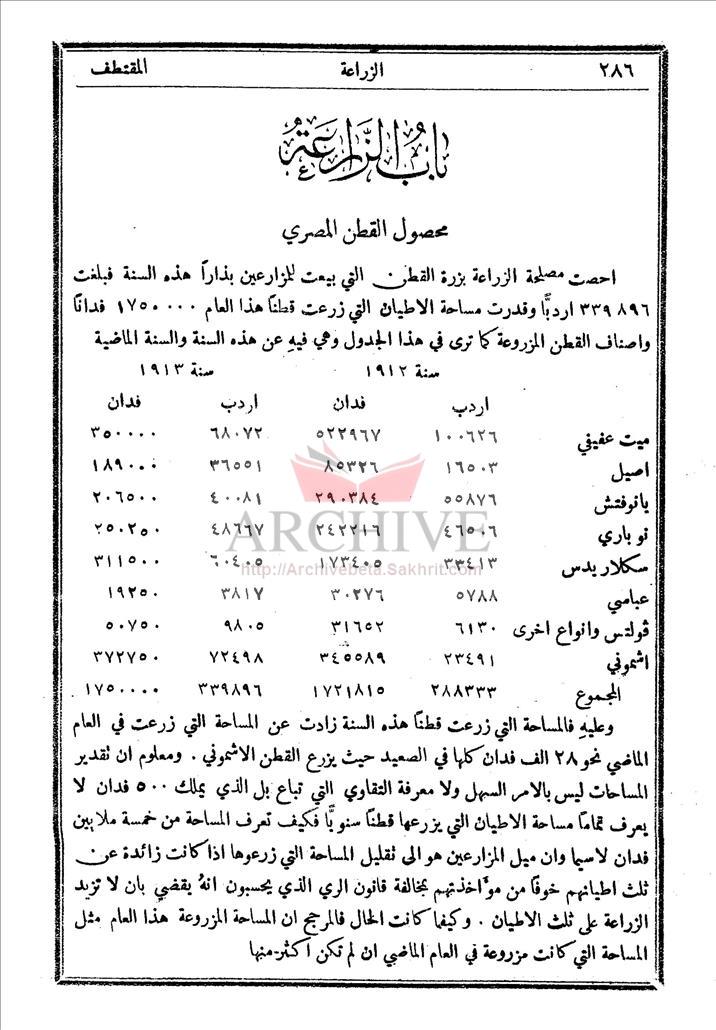 ٢٨٦ الزراعة المقتطف
باب الزراعة
محصول القطن المصري
احصت مصلحة الزراعة بزرة القطن التي بيعت للمزارعين بذاراً هذه السنة فبلغت
٣٣٩٨٩٦ اردبًّا وقدرت مساحة الاطيان التي زرعت قطنًا هذا العام ١٧٥٠٠٠٠ فدانًا
واصناف القطن المزروعة كما ترى في هذا الجدول وهي فيهِ عن هذه السنة والسنة الماضية
سنة ١٩١٢ سنة ١٩١٣
اردب فدان اردب فدان
ميت عفيفي ١٠٠٦٢٦ ٥٢٢٩٦٧ ٦٨٠٧٢ ٣٥٠٠٠٠
اصيل ١٦٥٠٣ ٨٥٣٢٦ ٣٦٥٥١ ١٨٩٠٠٠
يانوفتش ٥٥٨٧٦ ٢٩٠٣٨٤ ٤٠٠٨١ ٢٠٦٥٠٠
نوباري ٤٦٥٠٦ ٢٤٢٢١٦ ٤٨٦٦٧ ٢٥٠٢٥٠
سكلاريدس ٣٣٤١٣ ١٧٣٤٠٥ ٦٠٤٠٥ ٣١١٥٠٠
عباسي ٥٧٨٨ ٣٠٢٧٦ ٣٨١٧ ١٩٢٥٠
ڤولتس وانواع اخرى ٦١٣٠ ٣١٦٥٢ ٩٨٠٥ ٥٠٧٥٠
اشموني ٢٣٤٩١ ٣٤٥٥٨٩ ٧٢٤٩٨ ٣٧٢٧٥٠
المجموع ٢٨٨٣٣٣ ١٧٢١٨١٥ ٣٣٩٨٩٦ ١٧٥٠٠٠٠
وعليهِ فالمساحة التي زرعت قطنًا هذه السنة زادت عن المساحة التي زرعت في العام
الماضي نحو ٢٨ الف فدان كلها في الصعيد حيث يزرع القطن الاشموني . ومعلوم ان تقدير
المساحات ليس بالامر السهل ولا معرفة التقاوي التي تباع بل الذي يملك ٥٠٠ فدان لا
يعرف تمامًا مساحة الاطيان التي يزرعها قطنًا سنويًّا فكيف تعرف المساحة من خمسة ملايين
فدان لاسيما وان ميل المزارعين هو الى تقليل المساحة التي زرعوها اذا كانت زائدة عن
ثلث اطيانهم خوفًا من مؤاخذتهم بمخالفة قانون الري الذي يحسبون انهُ يقضي بان لا تزيد
الزراعة على ثلث الاطيان . وكيفما كانت الحال فالمرجح ان المساحة المزروعة هذا العام مثل
المساحة التي كانت مزروعة في العام الماضي ان لم تكن اكثر منها
ARCHIVE
http://Archivebeta.Sakhrit.com